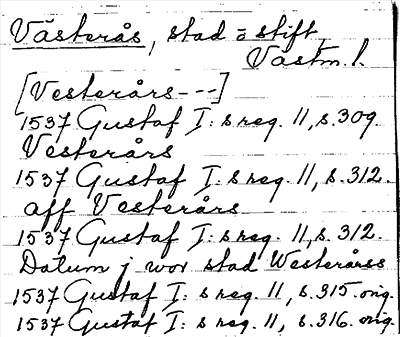 Västerås, stad o stift,
Västm. l.
[Vesterårs---]
1537 Gustaf I: s reg. 11, s. 309.
Vesterårs
1537 Gustaf I: s reg. 11, s. 312.
aff Vesterårs
1537 Gustaf I: s reg. 11, s. 312.
Datum j wor stad Westerårss
1537 Gustaf I: s reg. 11, s. 315. orig.
1537 Gustaf I: s reg. 11, s. 316. orig.